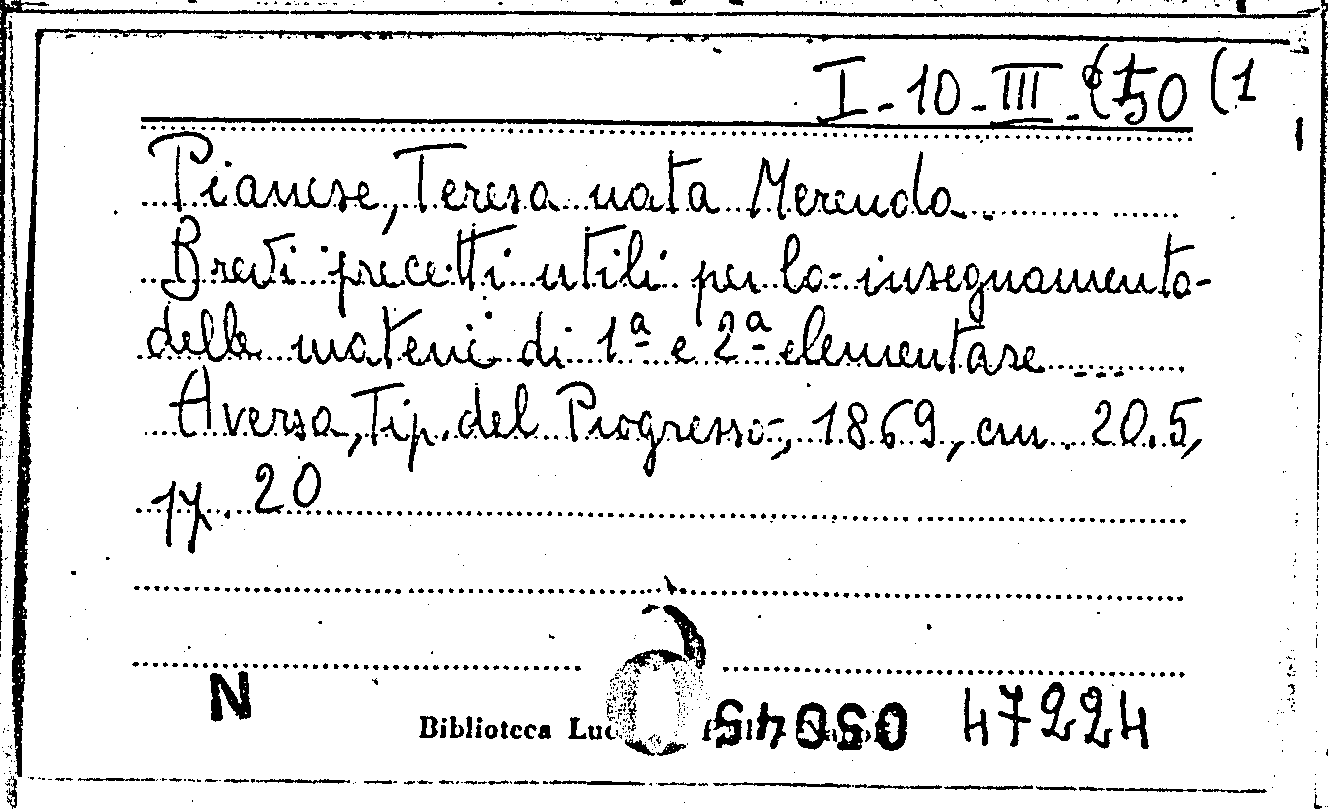 I-10-III-(50 (1
Pianese, Teresa nata Merenda.
Brevi precetti utili per lo insegnamento
delle materie di 1ª e 2ª elementare ...
Aversa, Tip. del Progresso, 1869, cm. 20.5,
pp. 20
N
Biblioteca 47224